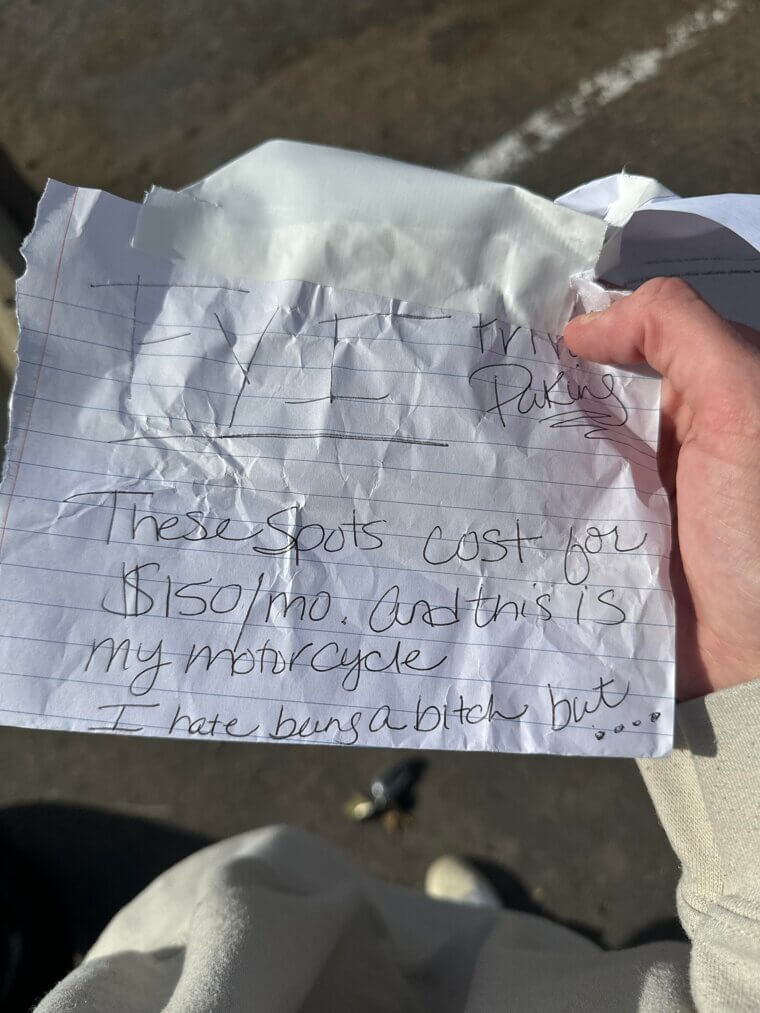 FYI
Paking
These spots cost for
$150/mo. and this is
my motorcycle
I hate being a bitch but....